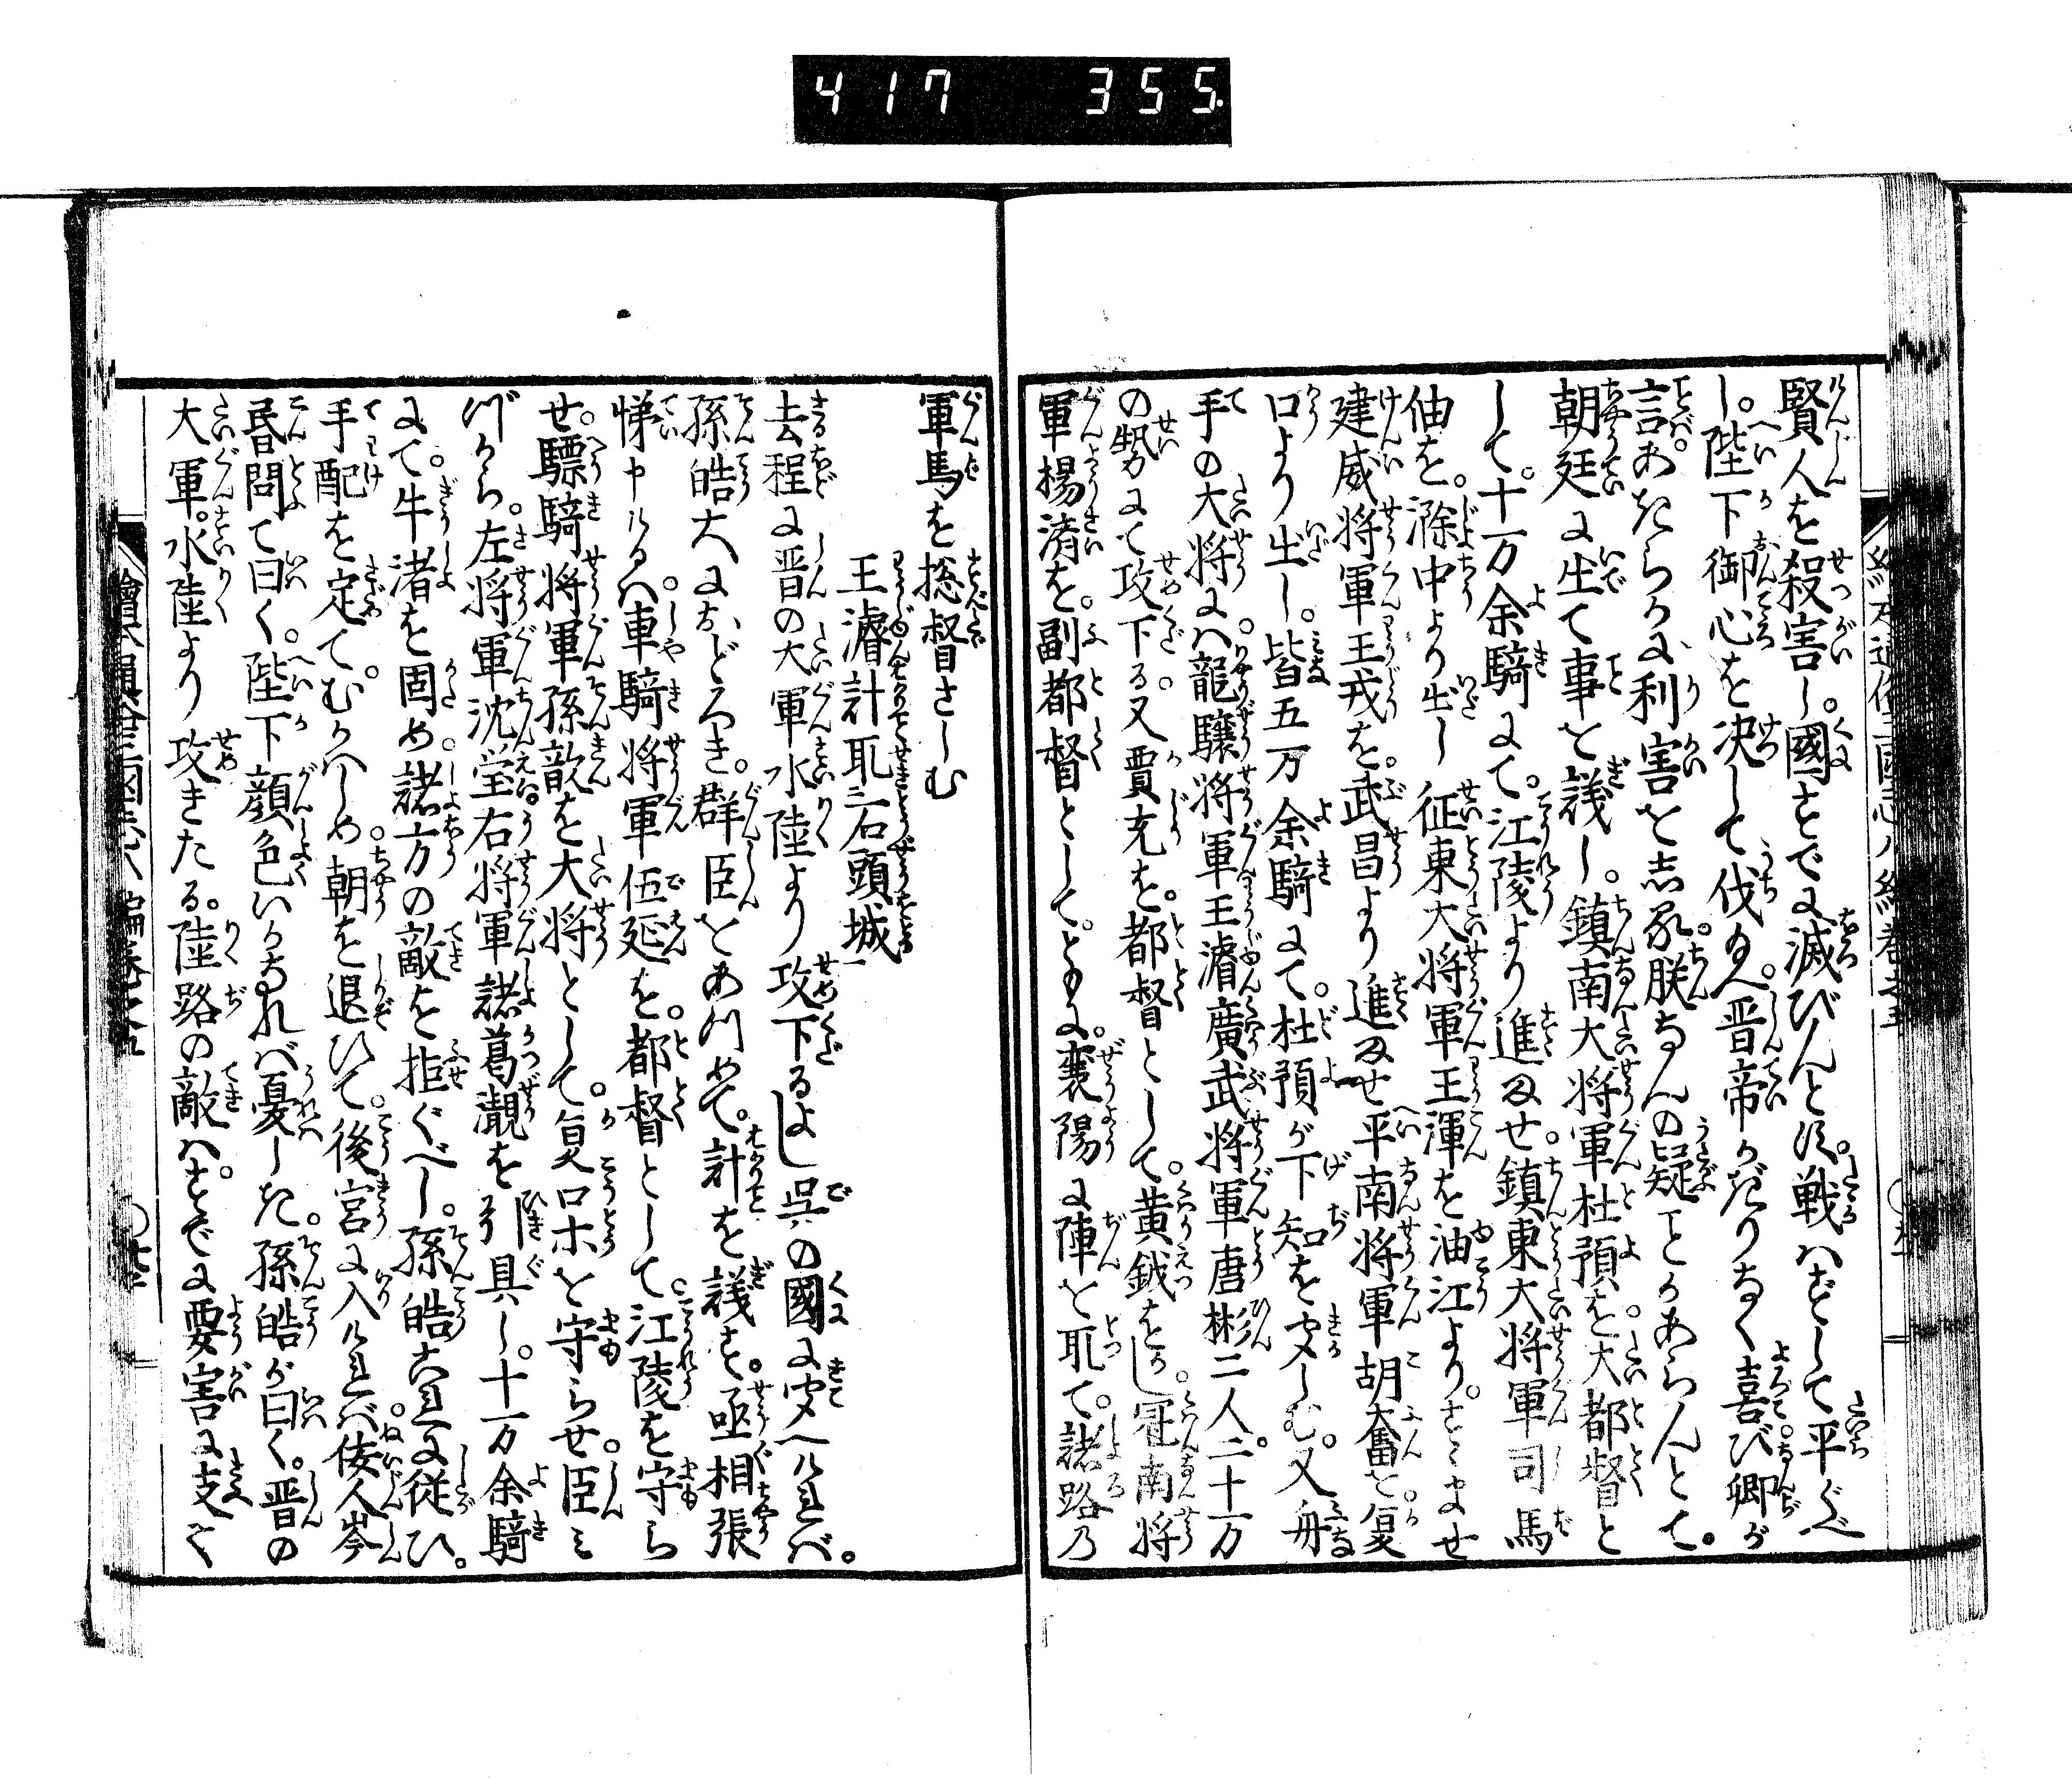 417 355.
賢人を殺害し。國すでに滅びんとす。戦はずして平ぐべ
し。陛下御心を决して伐給へ。晋帝かぎりなく喜び卿が
言。あきらかに利害を志る。朕なんの疑ことかあらんとて。
朝廷に出て事を議し。鎮南大将軍杜預を。大都督と
して。十万余騎にて。江陵より進ませ。鎮東大将軍司馬
伷を。滁中より出し征東大将軍王渾を油江より。すゝませ
建威将軍王戎を。武昌より進ませ平南将軍胡奮を。夏
口より出し。皆五万余騎にて。杜預が下知をきかしむ。又舟
手の大将には。龍驤将軍王濬廣武将軍唐彬二人。二十万
の勢にて攻下る。又賈充を。都督として。黄鉞をかし。冠南将
軍楊済を。副都督として。ともに。襄陽に陣を取て。諸路乃
軍馬を総督さしむ
王濬計取石頭城
去程に晋の大軍水陸より攻下るよし呉の國に聞へければ。
孫皓大におどろき。群臣をあつめて。計を議す。丞相張
悌申けるは。車騎将軍伍延を。都督として。江陵を守ら
せ。驃騎将軍孫歆を大将として。夏口ホを守らせ。臣み
づから。左将軍沈莹右将軍諸葛瀚を引具し。十万余騎
にて。牛渚を固め。諸方の敵を拒ぐべし。孫皓これに従ひ。
手配を定て。むかはしめ。朝を退ひて。後宮に入ければ。佞人岑
昏問て曰く。陛下顔色いかなれば憂しき。孫皓が曰く。晋の
大軍。水陸より攻きたる。陸路の敵は。すでに要害に支